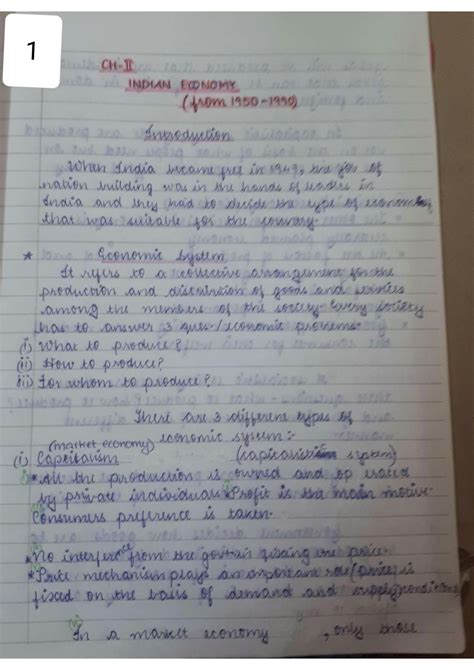 1
CH-II
INDIAN ECONOMY
(from 1950-1990)
Introduction
When India became free in 1947, the job of
nation building was in the hands of leaders in
India and they had to decide the type of economy
that was suitable for the country.
* Economic System
It refers to a collective arrangement for the
production and distribution of goods and services
among the members of the society. Every society
has to answer 3 ques./economic problems
(i) What to produce?
(ii) How to produce?
(iii) For whom to produce?
There are 3 different types of
(market economy) economic system:-
(i) Capitalism (capitalistic system)
* All the production is owned and operated
by private individuals * Profit is the main motive.
Consumers preference is taken.
* No interference from the govt. in fixing the price.
* Price mechanism plays an important role (price is
fixed on the basis of demand and supply conditions
In a market economy , only those